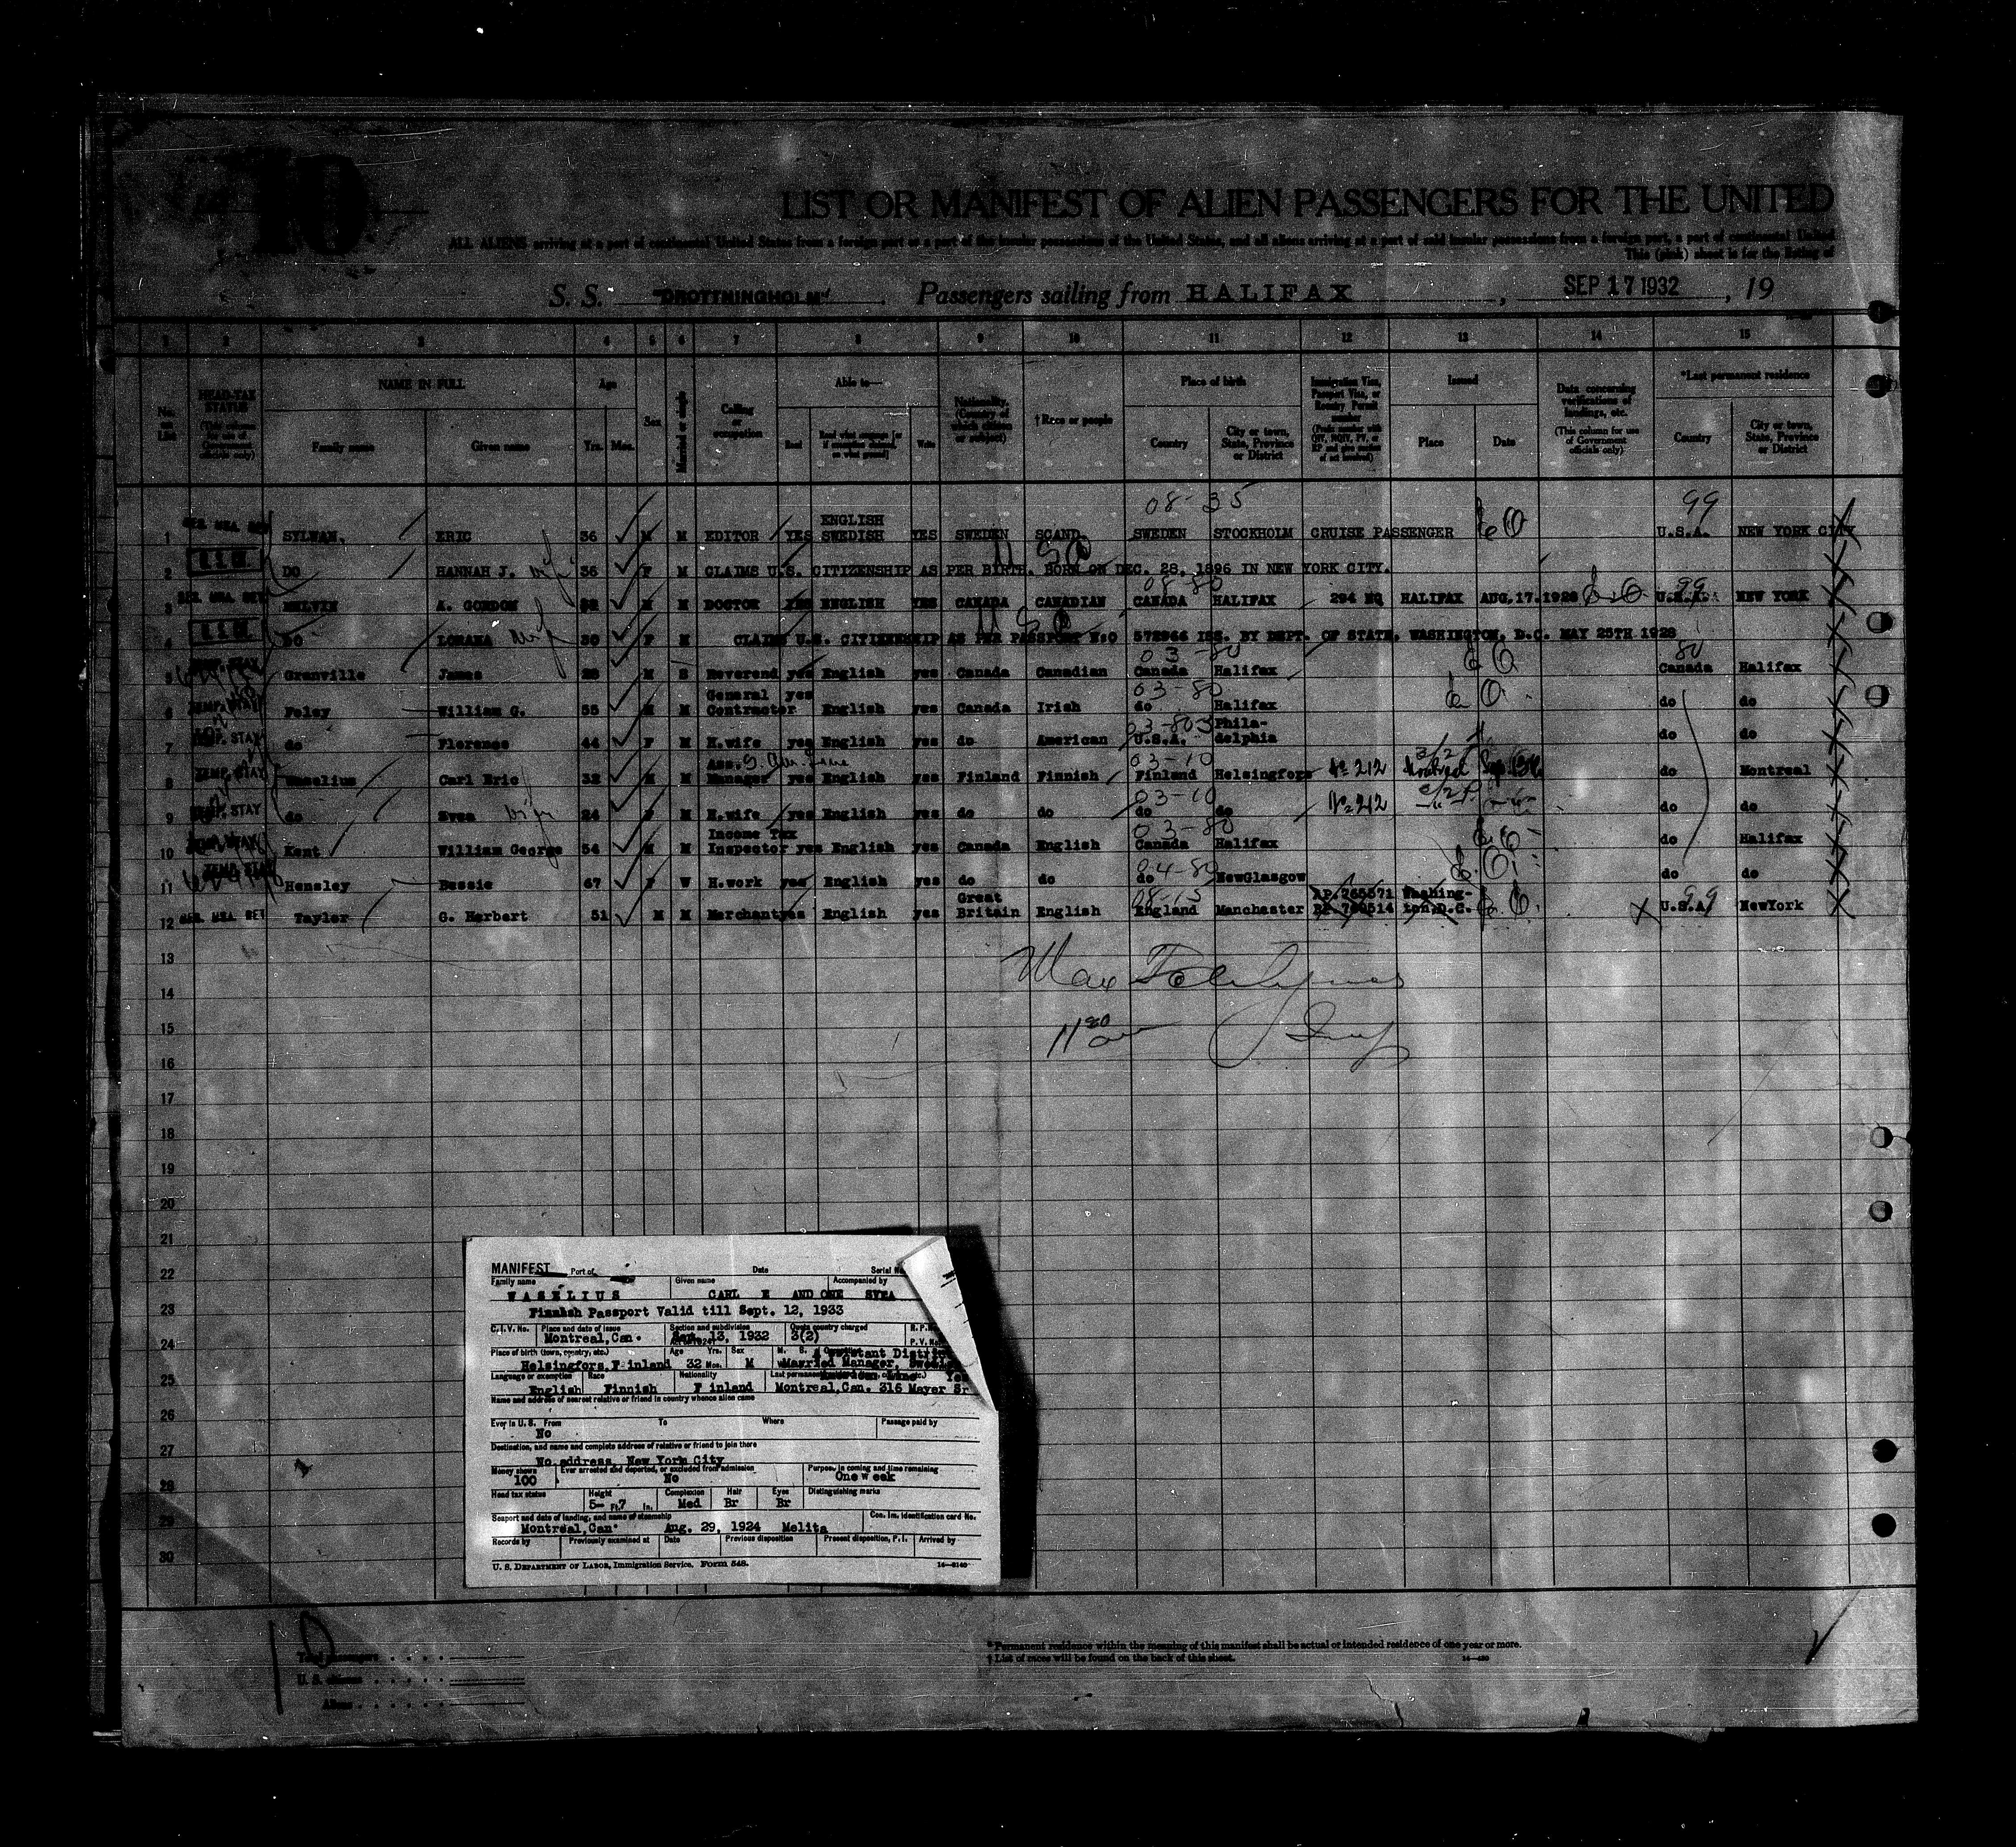 10
LIST OR MANIFEST OF ALIEN PASSENGERS FOR THE UNITED
ALL ALIENS arriving at a port of continental United States from a foreign port or a port of the insular possessions of the United States, and all aliens arriving at a port of said insular possessions from a foreign port, a port of continental United
This (pink) sheet is for the listing of
S. S. "DROTTNINGHOLM" Passengers sailing from HALIFAX, SEP 17 1932, 19
1 2 3 4 5 6 7 8 9 10 11 12 13 14 15
No. on List
HEAD-TAX STATUS (This column for use of Government officials only)
NAME IN FULL
Family name Given name
Age
Yrs. Mos.
Sex
Married or single
Calling or occupation
Able to—
Read Read what language [or if exemption claimed, on what ground] Write
Nationality. (Country of which citizen or subject)
†Race or people
Place of birth
Country City or town, State, Province or District
Immigration Visa, Passport Visa, or Reentry Permit number
Issued
Place Date
Data concerning verifications of landings, etc.
(This column for use of Government officials only)
*Last permanent residence
Country City or town, State, Province or District
08-35 99
1 SYLWAN, ERIC 36 M M EDITOR YES ENGLISH SWEDISH YES SWEDEN SCAND. SWEDEN STOCKHOLM CRUISE PASSENGER U.S.A. NEW YORK CITY
2 DO HANNAH J. 36 F M CLAIMS U.S. CITIZENSHIP AS PER BIRTH. BORN ON DEC. 28, 1896 IN NEW YORK CITY.
08-80 99
3 MELVIN A. GORDON M M DOCTOR YES ENGLISH YES CANADA CANADIAN CANADA HALIFAX 294 NQ HALIFAX AUG.17.1928 U.S.A. NEW YORK
4 DO LORANA 30 F M CLAIMS U.S. CITIZENSHIP AS PER PASSPORT N:O 572966 ISS. BY DEPT. OF STATE, WASHINGTON, D.C. MAY 25TH 1928
03-80 80
5 TEMP. STAY Granville James 28 M S Reverend yes English yes Canada Canadian Canada Halifax Canada Halifax
03-80
6 TEMP. STAY Foley William G. 55 M M General Contractor yes English yes Canada Irish do Halifax do do
03-80
7 TEMP. STAY do Florence 44 F M H.wife yes English yes do American U.S.A. Philadelphia do do
03-10
8 TEMP. STAY Waselius Carl Eric 32 M M Ass. Manager yes English yes Finland Finnish Finland Helsingfors No 212 Montreal do Montreal
03-10
9 TEMP. STAY do Svea 24 F M H.wife yes English yes do do do do No 212 do do
03-80
10 TEMP. STAY Kent William George 54 M M Income Tax Inspector yes English yes Canada English Canada Halifax do Halifax
04-80
11 TEMP. STAY Hensley Bessie 67 F W H.work yes English yes do do do NewGlasgow do do
08-15 99
12 Tayler G. Herbert 51 M M Merchant yes English yes Great Britain English England Manchester Washington,D.C. U.S.A. NewYork
13
14
15
16
17
18
19
20
21
22
23
24
25
26
27
28
29
30
MANIFEST Port of Date Serial No.
Family name Given name Accompanied by
WASELIUS CARL E AND ONE SVEA
Finnish Passport Valid till Sept. 12, 1933
C.I.V. No. Place and date of issue Section and subdivision Quota country charged R.P.
Montreal, Can. Sep. 13, 1932 3(2) P.V. No.
Place of birth (town, country, etc.) Age Yrs. Sex M. S.
Helsingfors, Finland 32 Mos. M Married Manager,
Language or exemption Race Nationality Last permanent
English Finnish Finland Montreal,Can. 316 Mayer
Name and address of nearest relative or friend in country whence alien came
Ever in U. S. From To Where Passage paid by
No
Destination, and name and complete address of relative or friend to join there
No address, New York City
Money shown Ever arrested and deported, or excluded from admission Purpose in coming and time remaining
100 No One week
Head tax status Height Complexion Hair Eyes Distinguishing marks
5- Ft. 7 In. Med Br Br
Seaport and date of landing, and name of steamship Can. Im. identification card No.
Montreal, Can. Aug. 29, 1924 Melita
Records by Previously examined at Date Previous disposition Present disposition, P. I. Arrived by
U. S. DEPARTMENT OF LABOR, Immigration Service. Form 548. 14—3140
Total passengers
U. S. citizens
Aliens
* Permanent residence within the meaning of this manifest shall be actual or intended residence of one year or more.
† List of races will be found on the back of this sheet.
14—430